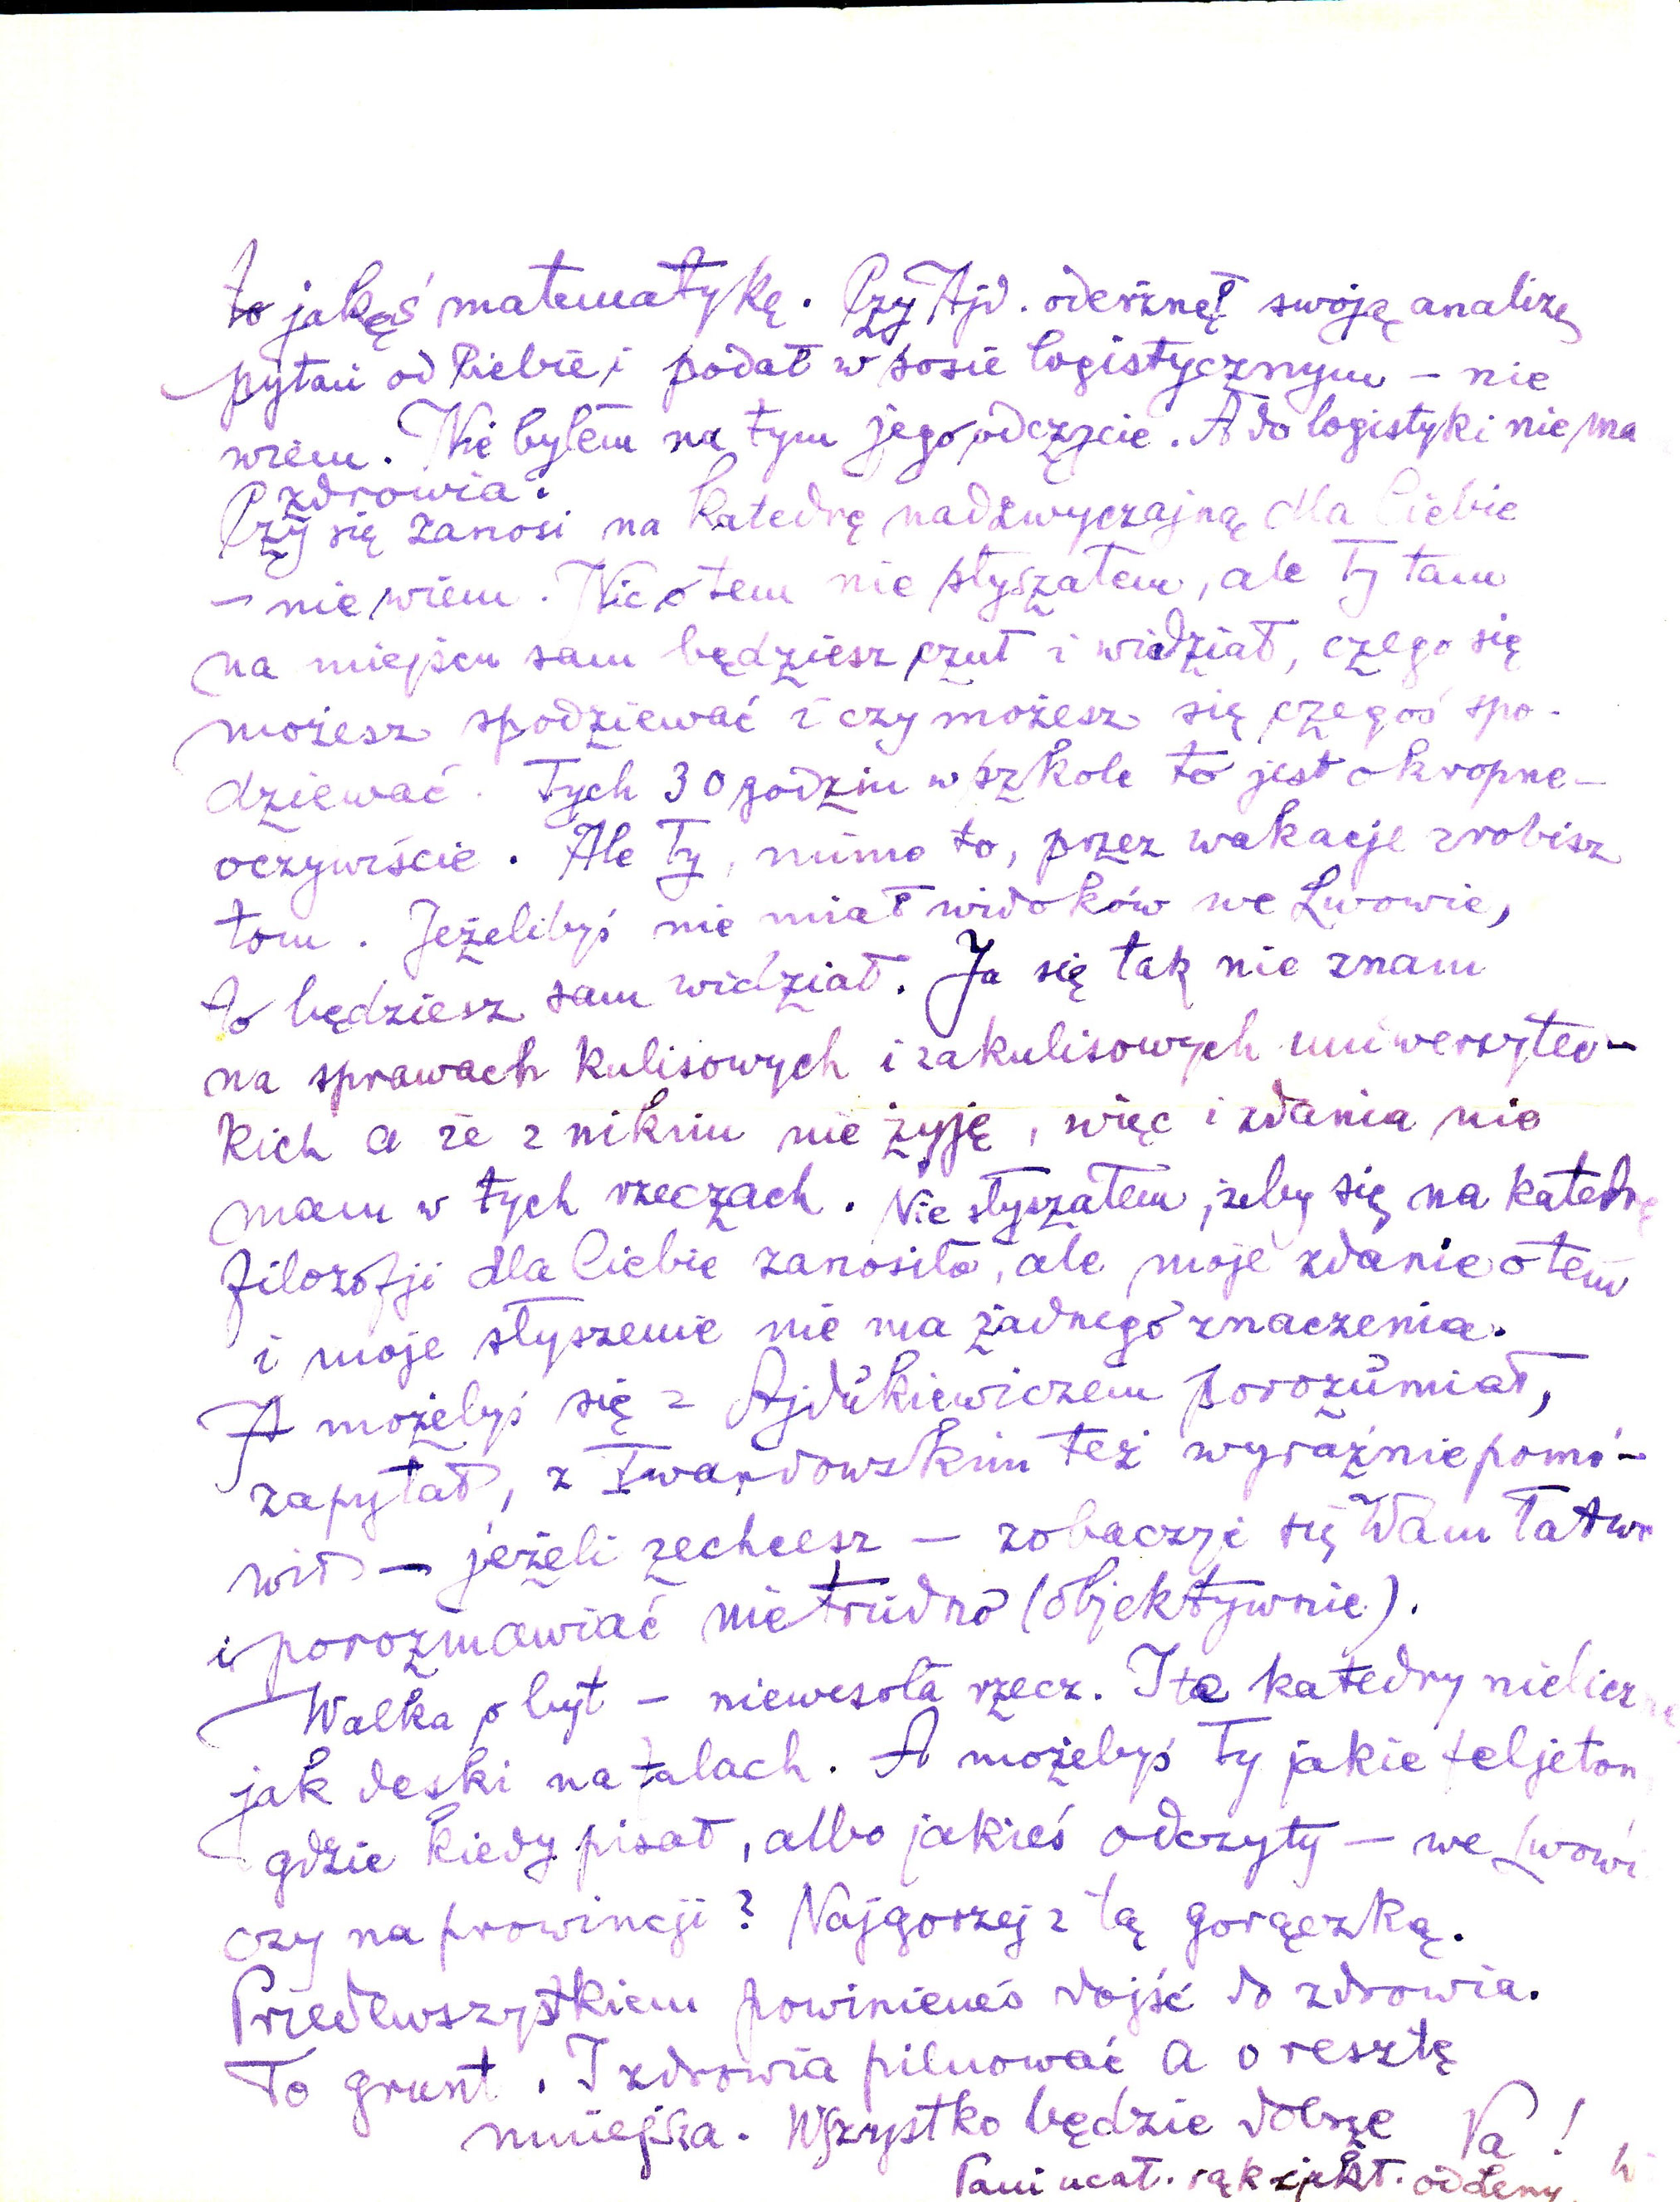 to jakąś matematykę. Czy Ajd. oderżnął swoją analizę
pytań od Ciebie i podał w sosie logistycznym – nie
wiem. Nie byłem na tym jego odczycie. A do logistyki nie ma
zdrowia.
Czy się zanosi na katedrę nadzwyczajną dla Ciebie
– nie wiem. Nic o tem nie słyszałem, ale Ty tam
na miejscu sam będziesz czuł i widział, czego się
możesz spodziewać i czy możesz się czegoś spo-
dziewać. Tych 30 godzin w szkole to jest okropne –
oczywiście. Ale Ty, mimo to, przez wakacje zrobisz
tom. Jeżelibyś nie miał widoków we Lwowie,
to będziesz sam widział. Ja się tak nie znam
na sprawach kulisowych i zakulisowych uniwersytec-
kich a że z nikim nie żyję, więc i zdania nie
mam w tych rzeczach. Nie słyszałem, żeby się na katedrę
filozofji dla Ciebie zanosiło, ale moje zdanie o tem
i moje słyszenie nie ma żadnego znaczenia.
A możebyś się z Ajdukiewiczem porozumiał,
zapytał, z Twardowskim też wyraźnie pomó-
wił – jeżeli zechcesz – zobaczyć się Wam łatwo
i porozmawiać nietrudno (objektywnie).
Walka o byt – niewesoła rzecz. I te katedry nieliczne
jak deski na falach. A możebyś Ty jakie feljeton
gdzie kiedy pisał, albo jakieś odczyty – we Lwowi
czy na prowincji? Najgorzej z tą gorączką.
Przedewszystkiem powinieneś dojść do zdrowia.
To grunt. I zdrowia pilnować a o resztę
mniejsza. Wszystko będzie dobrze Pa!
Pani ucał. rąk od Leny